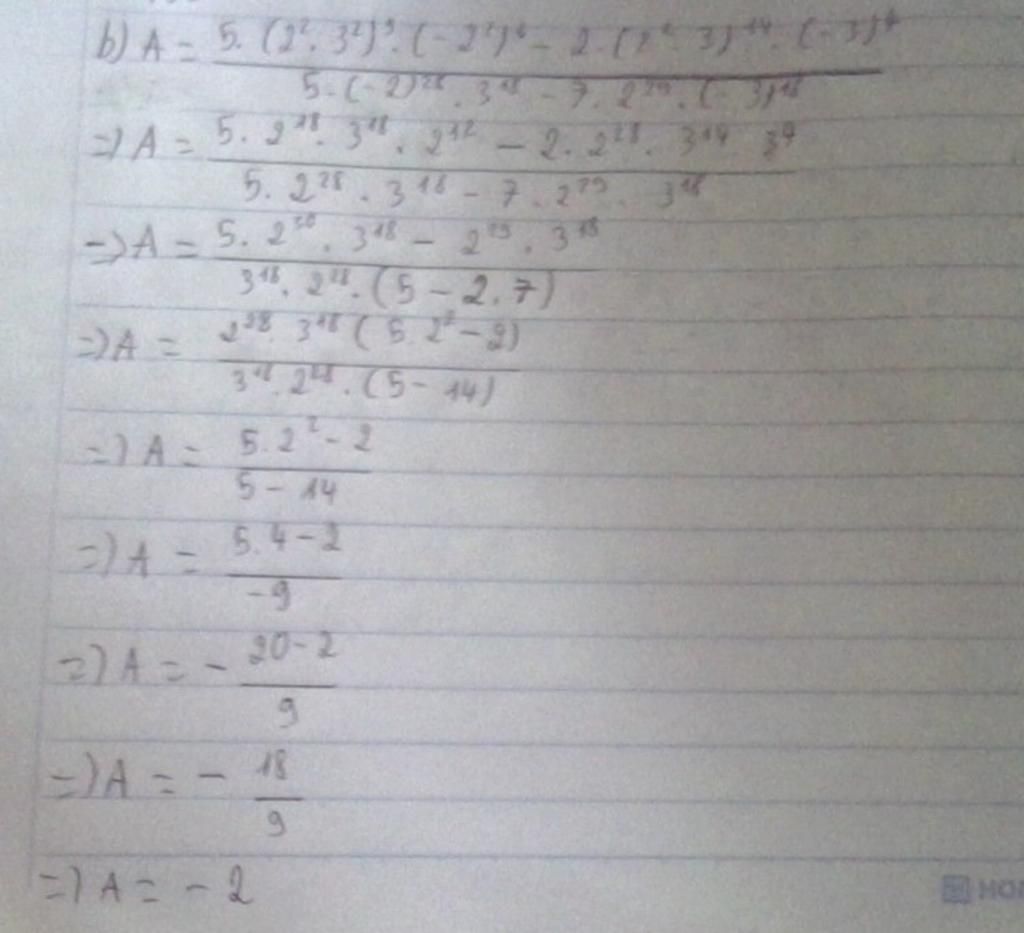 b) A = \frac{5. (2². 3²)⁹. (-2²)⁶ - 2. (2². 3)¹⁴. (-3)⁴}{5. (-2)²⁸. 3¹⁸ - 7. 2²⁹. (-3)¹⁸}
=) A = \frac{5. 2¹⁸. 3¹⁸. 2¹² - 2. 2²⁸. 3¹⁴ 3⁴}{5. 2²⁸. 3¹⁸ - 7. 2²⁹. 3¹⁸}
=) A = \frac{5. 2³⁰. 3¹⁸ - 2²⁹. 3¹⁸}{3¹⁸. 2²⁸. (5 - 2.7)}
=) A = \frac{2²⁸. 3¹⁸ (5. 2² - 2)}{3¹⁸. 2²⁸. (5 - 14)}
=) A = \frac{5. 2² - 2}{5 - 14}
=) A = \frac{5. 4 - 2}{-9}
=) A = - \frac{20 - 2}{9}
=) A = - \frac{18}{9}
=) A = - 2